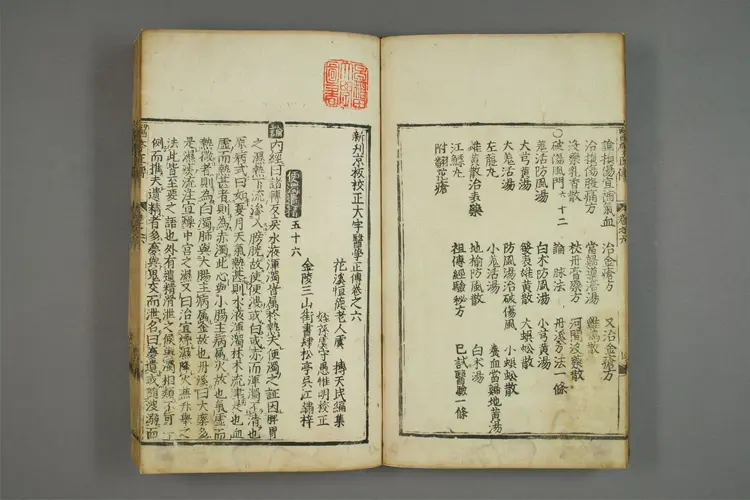 論損傷宜補氣血
治損傷腹痛方
沒藥乳香散
○破傷風門六十二
羗活防風湯
大芎黃湯
大羗活湯
左龍丸
雄黃散治表藥
江鰾丸
附翻花瘡
治金瘡方
當歸導滯湯
論
脉法
白术防風湯
防風湯治破傷風
小羗活湯
地榆防風散
祖傳經驗秘方
又治金瘡方
雞鳴散
河間沒藥散
丹溪方法一條
小芎黃湯
大蜈蚣散
小蜈蚣散
養血當歸地黃湯
白术湯
已試醫驗一條
新刋京板校正大字醫學正傳卷之六
花溪恒德老人虞摶天民編集
姪孫虞守愚惟明校正
金陵三山街書肆松亭吳江繡梓
便濁遺精五十六
論內經曰諸轉反戾水液渾濁皆屬於熱夫便濁之証因脾胃
之濕熱下流滲入膀胱故使便溲或白或赤而渾濁不清也
原病式曰如夏月天氣熱甚則水液渾濁林木流津是也血
虛而熱甚者則為赤濁此心與小腸主病屬火故也氣虛而
熱微者則為白濁肺與大腸主病屬金故也丹溪曰大率多
是濕痰流注宜燥中宮之濕又曰治宜燥濕降火兼升舉之
法此皆至要之語也外有遺精滑泄之候與濁相類不可一
例而推夫遺精者多夢與鬼交而泄名曰夢遺或隨溲溺而